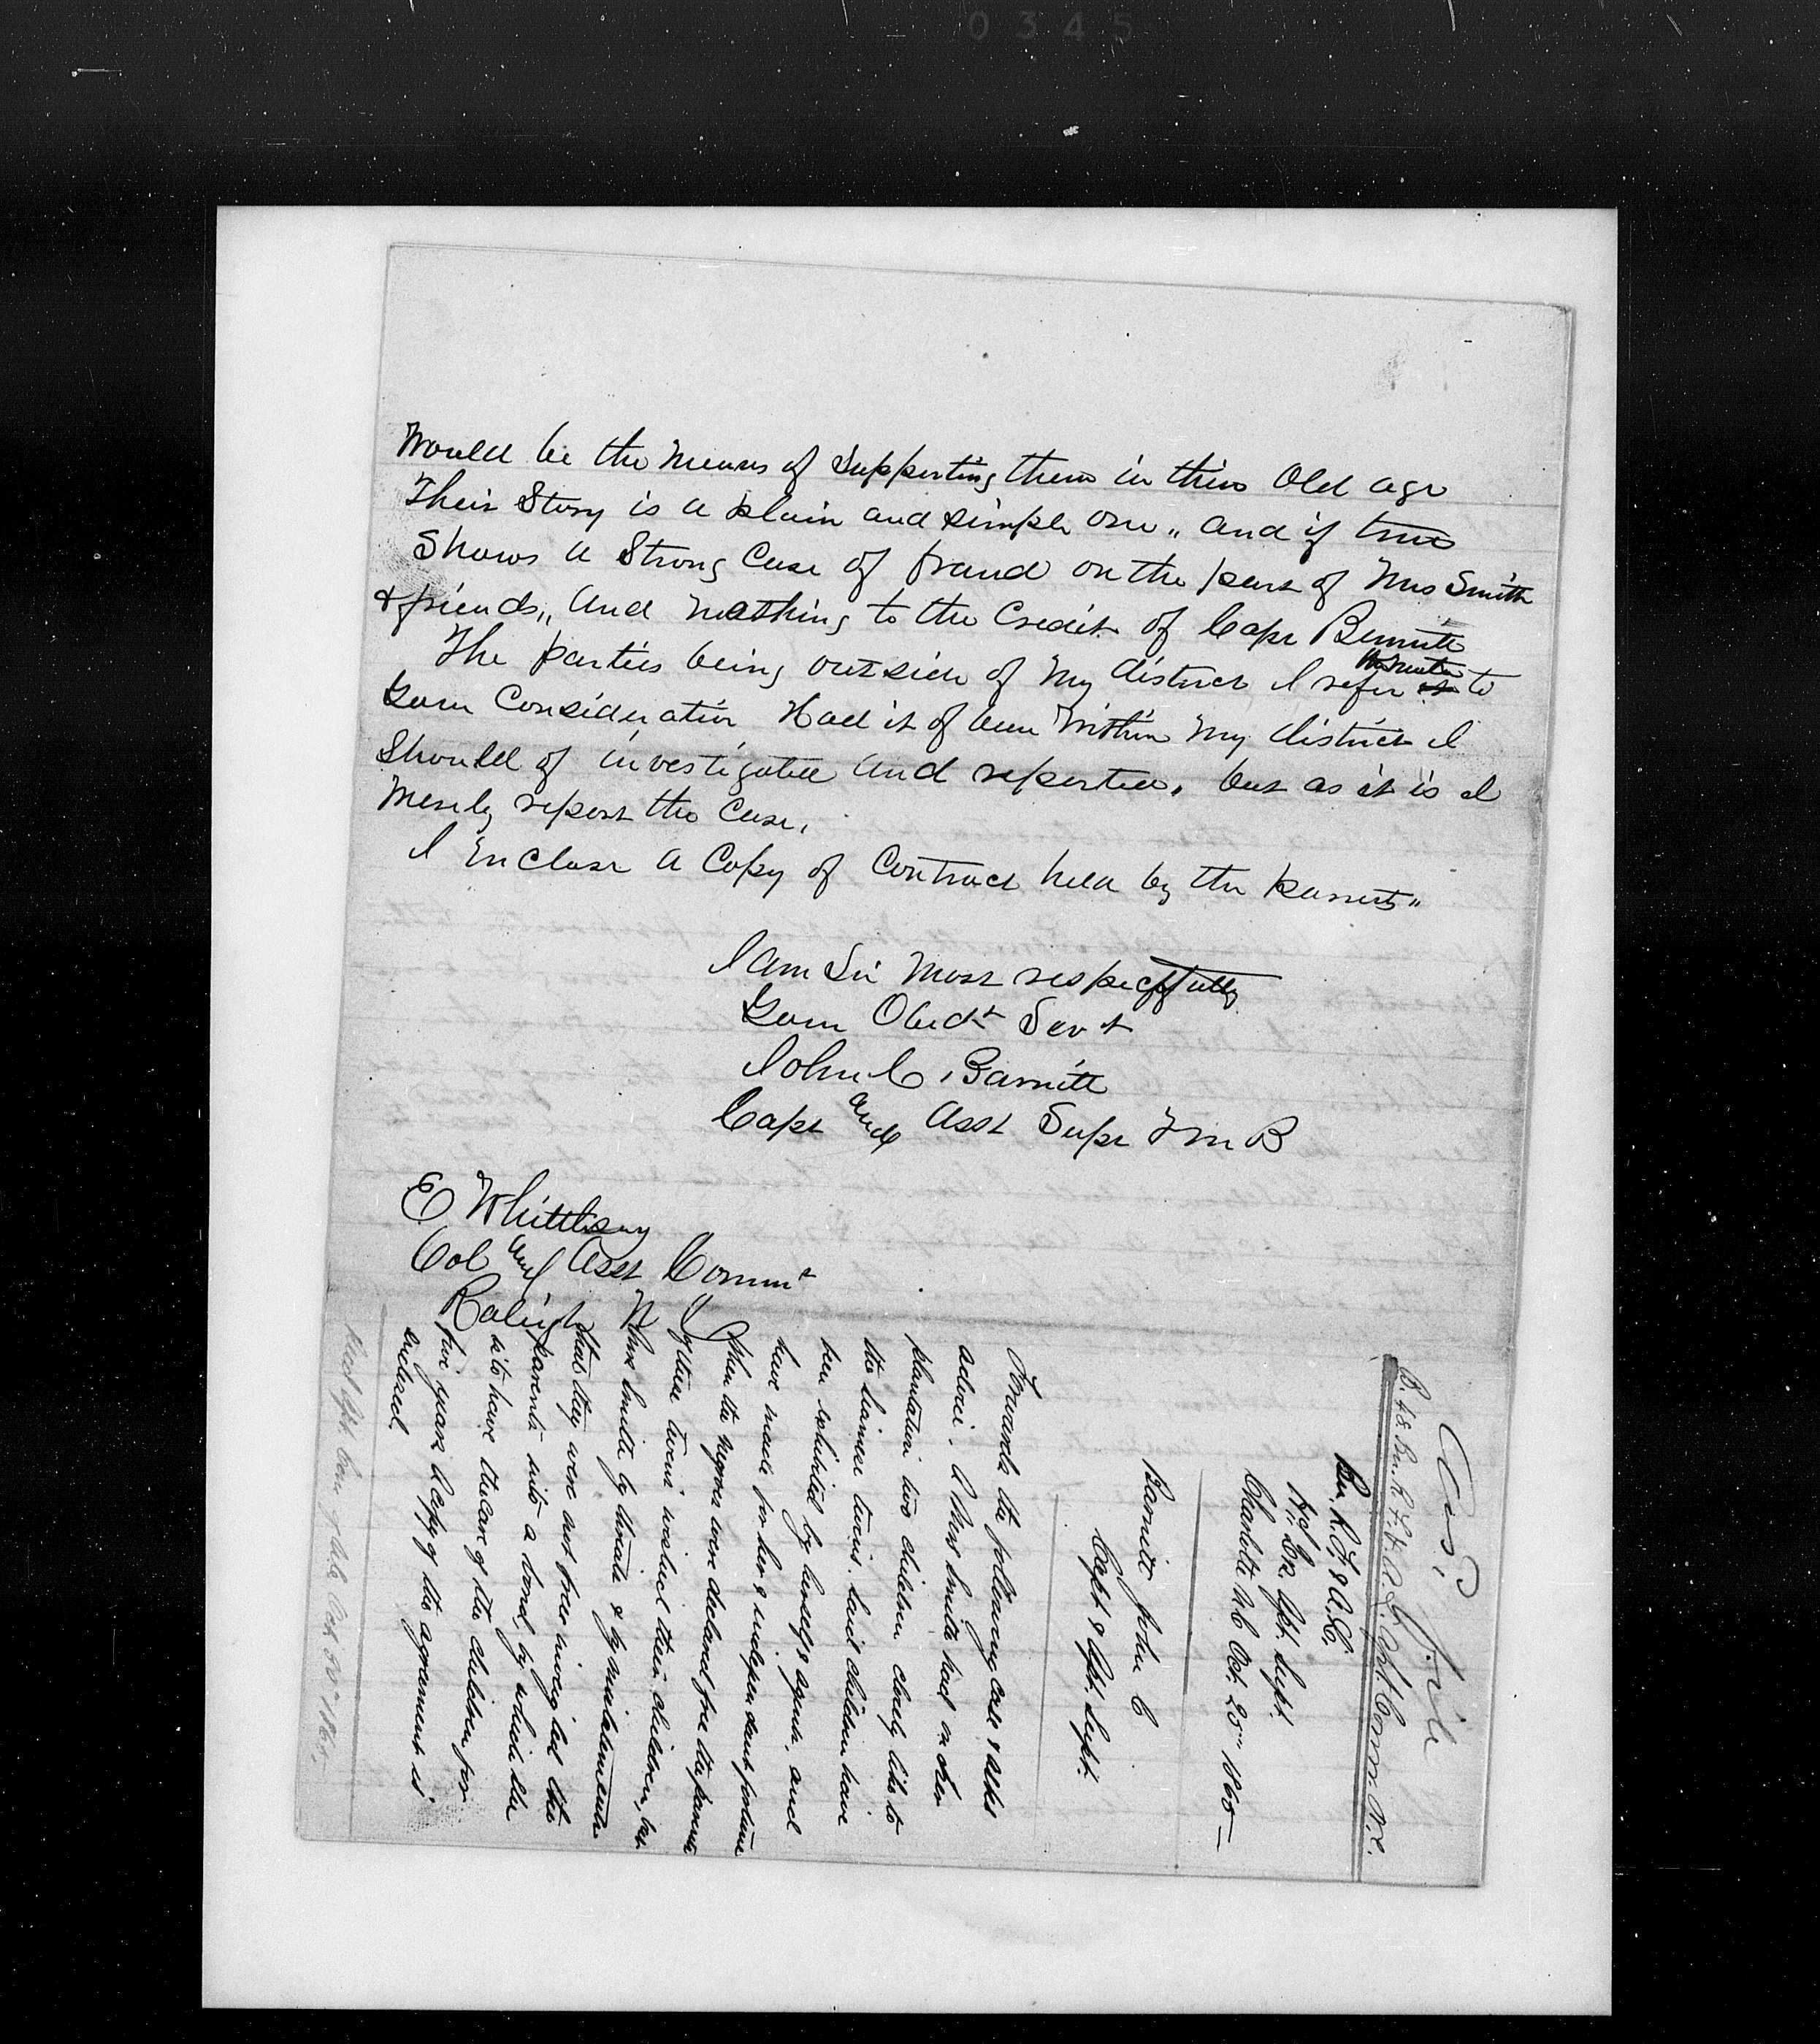 0345
Would be the means of Supporting them in thier Old age
Their Story is a plain and simple one,, and if true
Shows a Strong Case of fraud on the part of Mrs Smith
& friends,, And nothing to the Credit of Capt Bennett
The parties being outside of My district I refer to
Your Consideration Had it of been Within My district I
Should of investigated And reported, but as it is I
Merely report the Case,
I Enclose A Copy of Contract held by the parents,,
I Am Sir Most respectfully
Your Obedt Servt
John C, Barnett
Capt and Asst Supt
E Whittlesey
Col and Asst Commr
Raleigh N C
Cas?
file
B. 48. Bu. R. F. & A. L. Asst. Comm. N.C.
Bu. R. F. & A. L.
Hd. Qr. Asst. Supt.
Charlotte N.C. Oct. 25" 1865—
Barnett John C
Capt & Asst. Supt.
Forwards the following case & asks
advice. A Mrs Smith had on her
plantation two children closely like to
the Siamese twins. Said children have
been exhibited by herself & agents, and
have made for her & independant fortune
When the negroes were declared free the parents
of these twins wished their children, but
Mrs Smith by threats & by misstatements
that they were not free inveigled the
parents into a bond, by which she
is to have the care of the children for
five years. A Copy of the agreement is
enclosed
Recd Asst. Com